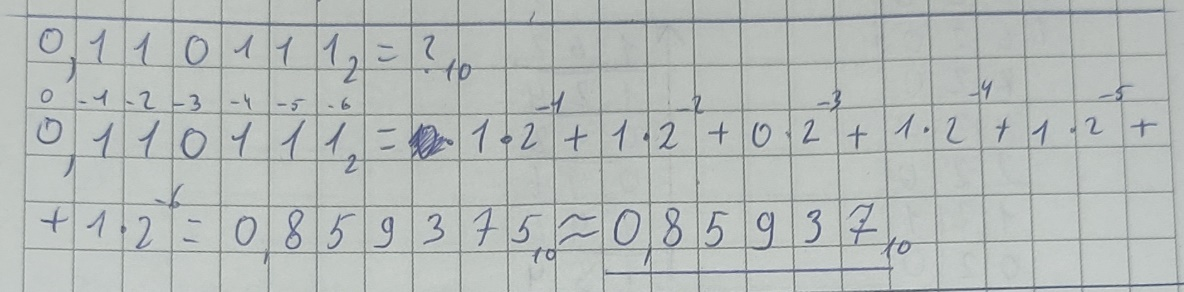 0,110111₂ = ?₁₀
0 -1 -2 -3 -4 -5 -6
0,110111₂ = 1·2⁻¹ + 1·2⁻² + 0·2⁻³ + 1·2⁻⁴ + 1·2⁻⁵ +
+ 1·2⁻⁶ = 0,859375₁₀ ≈ 0,85937₁₀